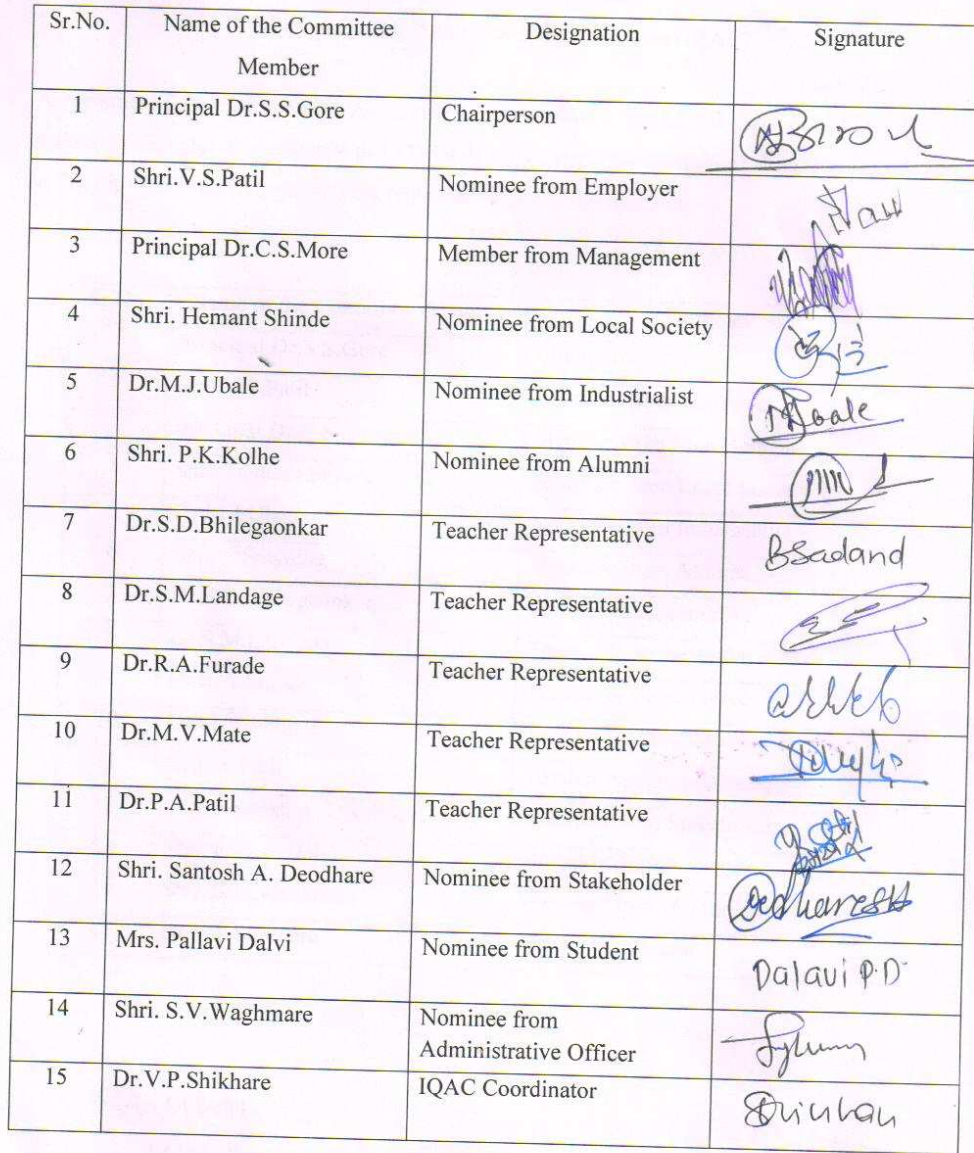 Sr.No. Name of the Committee Member Designation Signature
1 Principal Dr.S.S.Gore Chairperson
2 Shri.V.S.Patil Nominee from Employer
3 Principal Dr.C.S.More Member from Management
4 Shri. Hemant Shinde Nominee from Local Society
5 Dr.M.J.Ubale Nominee from Industrialist
6 Shri. P.K.Kolhe Nominee from Alumni
7 Dr.S.D.Bhilegaonkar Teacher Representative BSadand
8 Dr.S.M.Landage Teacher Representative
9 Dr.R.A.Furade Teacher Representative
10 Dr.M.V.Mate Teacher Representative
11 Dr.P.A.Patil Teacher Representative
12 Shri. Santosh A. Deodhare Nominee from Stakeholder
13 Mrs. Pallavi Dalvi Nominee from Student Dalavi P.D.
14 Shri. S.V.Waghmare Nominee from
Administrative Officer
15 Dr.V.P.Shikhare IQAC Coordinator